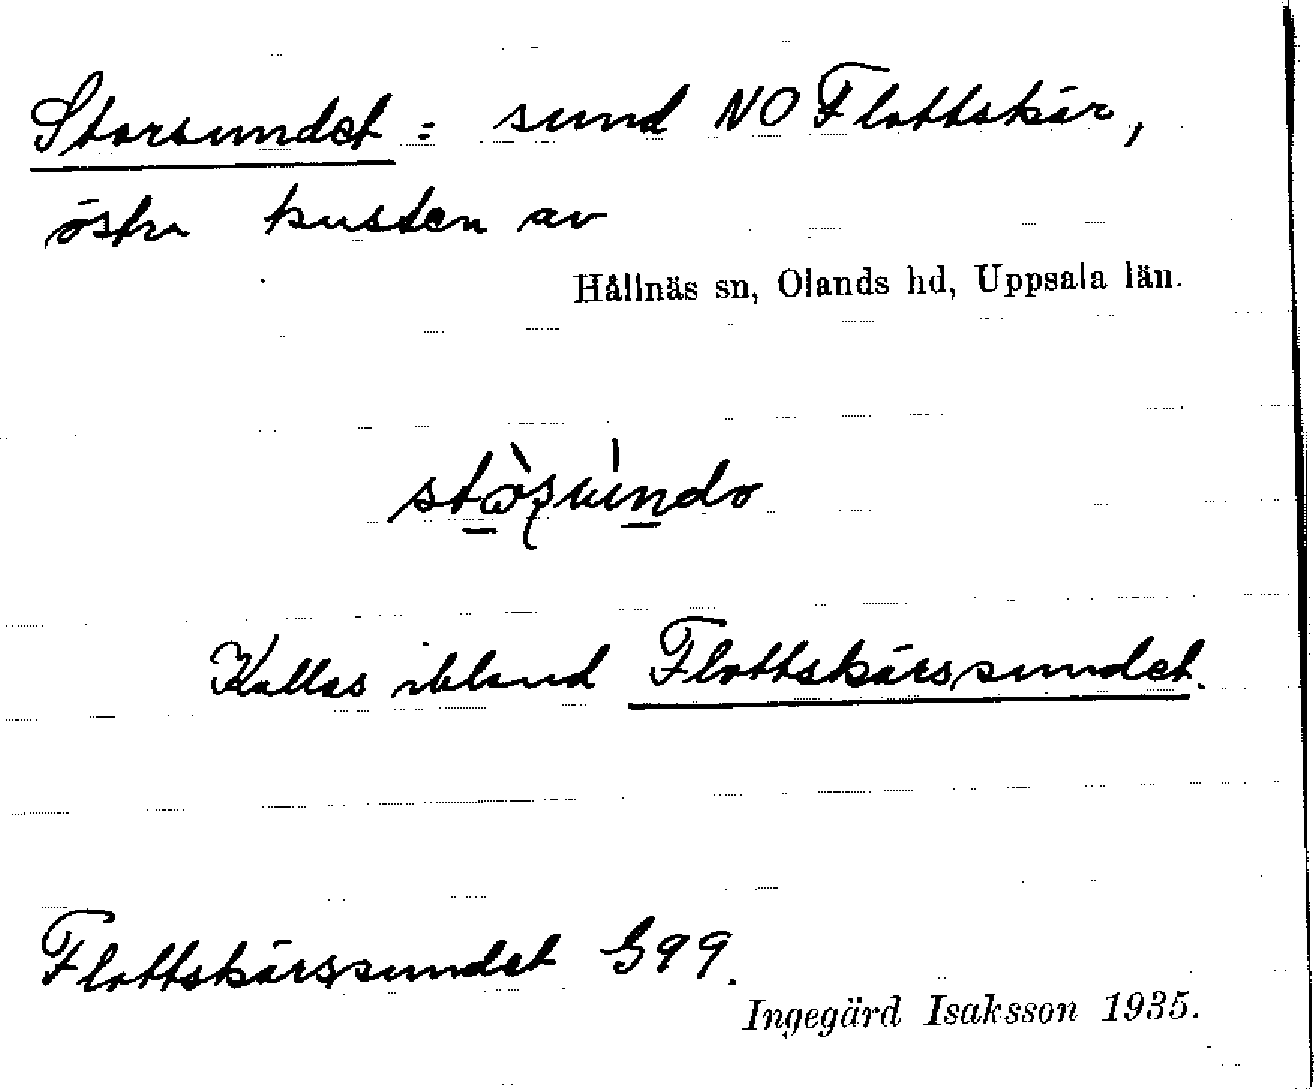 Storsundet = sund NO Flottskär,
östra kusten av
Hållnäs sn, Olands hd, Uppsala län.
Kallas ibland Flottskärssundet.
Flottskärssundet G99.
Ingegärd Isaksson 1935.